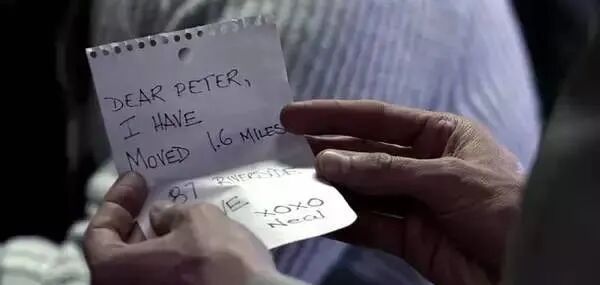 DEAR PETER,
I HAVE
MOVED 1.6 MILES
87 RIVERSIDE
XOXO
Neal